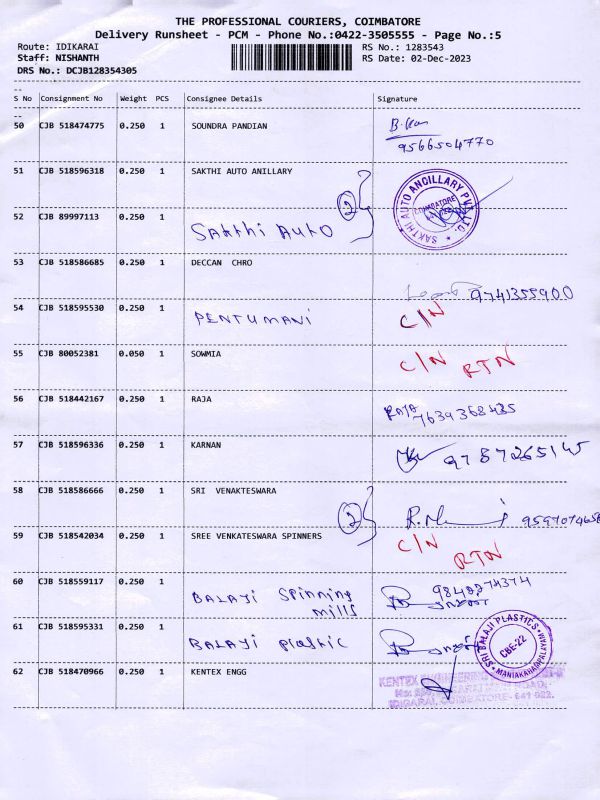 THE PROFESSIONAL COURIERS, COIMBATORE
Delivery Runsheet - PCM - Phone No.:0422-3505555 - Page No.:5
Route: IDIKARAI RS No.: 1283543
Staff: NISHANTH RS Date: 02-Dec-2023
DRS No.: DCJB128354305
S No Consignment No Weight PCS Consignee Details Signature
50 CJB 518474775 0.250 1 SOUNDRA PANDIAN
9566504770
51 CJB 518596318 0.250 1 SAKTHI AUTO ANILLARY
2
SAKTHI AUTO ANCILLARY PVT LTD.
COIMBATORE
52 CJB 89997113 0.250 1 Sakthi Auto
53 CJB 518586685 0.250 1 DECCAN CHRO
9741355900
54 CJB 518595530 0.250 1 PENTUMANI C/N
55 CJB 80052381 0.050 1 SOWMIA C/N RTN
56 CJB 518442167 0.250 1 RAJA RAJA 7639368435
57 CJB 518596336 0.250 1 KARNAN 9787265145
58 CJB 518586666 0.250 1 SRI VENAKTESWARA
2
59 CJB 518542034 0.250 1 SREE VENKATESWARA SPINNERS C/N RTN
60 CJB 518559117 0.250 1 BALAJI Spinning mills
61 CJB 518595331 0.250 1 BALAJI Plastic
SRI BALAJI PLASTICS
CBE-22
62 CJB 518470966 0.250 1 KENTEX ENGG
KENTEX ENGINEERING
IDIGARAI, COIMBATORE- 641 022.